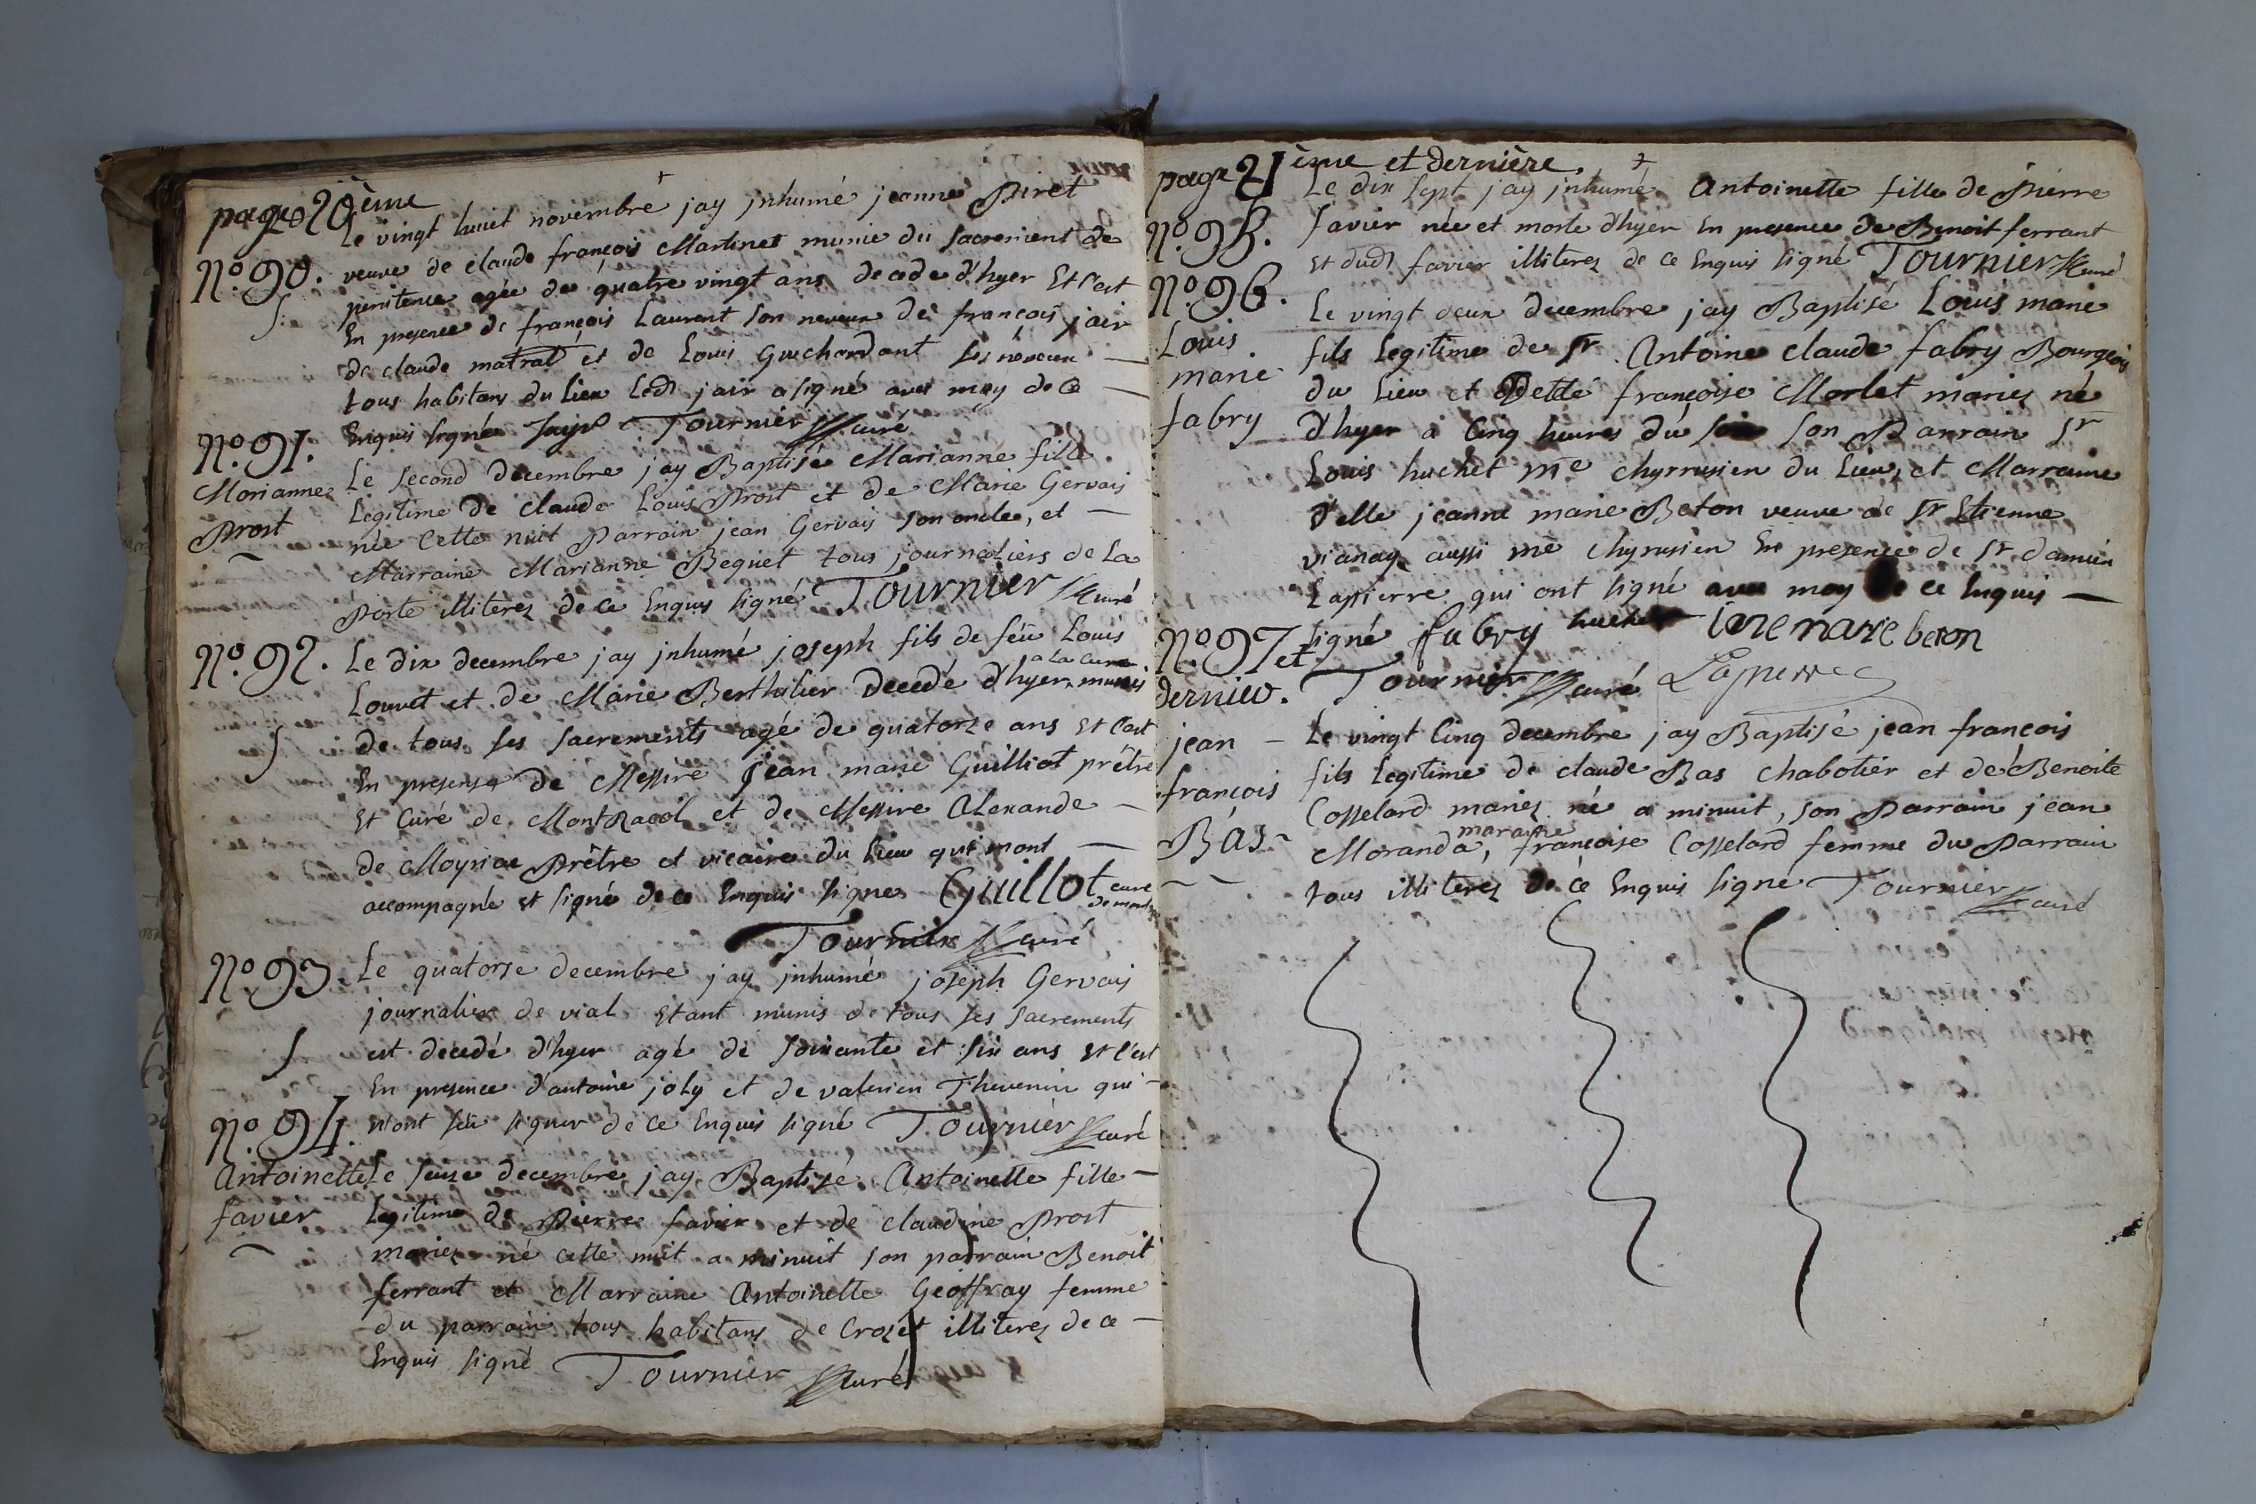 page 20ème
Le vingt huiet novembre jay jnhumé jeanne Piret
N.º 90. veuve de claude françois Martinet munie du sacrement de
penitence agée de quatre vingt ans decede d'hyer Et c'est
En presence de françois Laurent son neveux de françois jair
de claude matral et de Louis Guichardant ses neveux —
tous habitans du lieu led jair a signé avec moy de ce —
Enquis signé Jayr Tournier curé
N.º 91. Le second decembre jay Baptisé Marianne fille
Marianne Legitime de claude Louis Prost et de Marie Gervais
Prost née cette nuit Parrain jean Gervais son oncle, et —
Marraine Marianne Beguet tous journaliers de La
Porte illiterez de ce Enquis signé Tournier curé
N.º 92. Le dix decembre jay jnhumé joseph fils de feü Louis
a la cure
Louvet et de Marie Berthilier Decedé d'hyer munis
de tous ses sacrements agé de quatorze ans Et c'est
En presence de Messire Jean marie Guilliot prêtre
Et Curé de Montracol et de Messire Alexande —
de Moyriac Prêtre et vicaire du Lieu qui mont —
accompagné Et signé de ce Enquis signe Guillot curé
Tournier curé
N.º 93. Le quatorze decembre jay jnhumé joseph Gervais
journalier de vial Etant munis de tous ses sacrements
est decedé d'hyer agé de soixante et six ans Et c'est
En presence d'antoine joly et de valerien Thevenin qui —
n'ont sëu signer de ce Enquis signé Tournier curé
N.º 94.
Antoinette Le seize decembre jay Baptisé Antoinette fille —
favier Legitime de Pierre favier et de claudine Prost
mariez né cette nuit a minuit son parrain Benoit
ferrant et Marraine Antoinette Geoffray femme
du parrain tous habitans de Crozet illiterez de ce —
Enquis signé Tournier curé
page 21ème et dernière.
Le dix sept jay jnhumé Antoinette fille de Pierre
N.º 95. favier née et morte d'hyer En presence de Benoit ferrant
Et dud favier illiterez de ce Enquis signé Tournier curé
N.º 96. Le vingt deux decembre jay Baptisé Louis marie
Louis fils Legitime de Sr Antoine claude fabry Bourgeois
marie du Lieu et Delle françoise Morlet mariez né
fabry d'hyer a cinq heures du soir son Parrain Sr
Louis huchet me chyrrusien du Lieu, et Marraine
d'elle jeanne marie Beton veuve de Sr Etienne
vianay aussi me chyrusien En presence de Sr damien
Lapierre qui ont signé avec moy de ce Enquis —
signé fabry huchet marie beton
Tournier curé Lapierre
N.º 97 et
dernier.
jean — Le vingt Cinq decembre jay Baptisé jean françois
françois fils Legitime de claude Bas chabotier et de Benoite
Bas Cosselard mariez né a minuit, son Parrain jean
maraine
Moranda, françoise Cosselard femme du Parrain
tous illiterez de ce Enquis signé Tournier curé